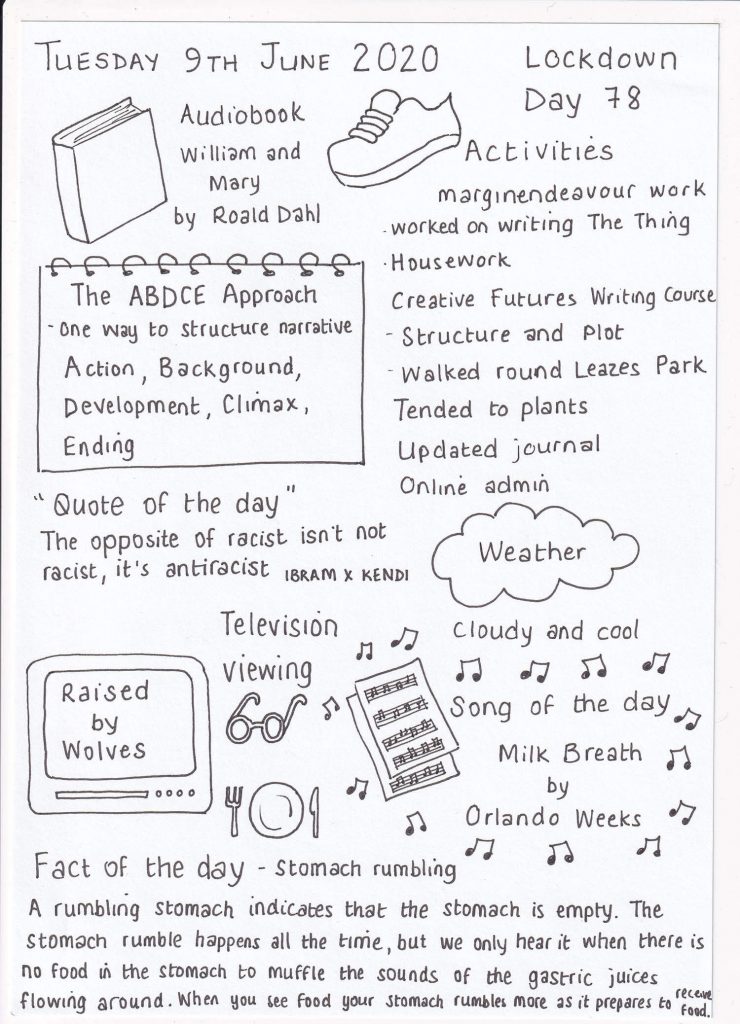 TUESDAY 9TH JUNE 2020
Lockdown
Day 78
Audiobook
William and
Mary
by Roald Dahl
Activities
marginendeavour work
· worked on writing The Thing
· Housework
Creative Futures Writing Course
- Structure and Plot
- Walked round Leazes Park
Tended to plants
Updated journal
Online admin
The ABDCE Approach
- One way to structure narrative
Action, Background,
Development, Climax,
Ending
"Quote of the day"
The opposite of racist isn't not
racist, it's antiracist IBRAM X KENDI
Weather
Cloudy and cool
Television
viewing
Raised
by
Wolves
Song of the day
Milk Breath
by
Orlando Weeks
Fact of the day - Stomach rumbling
A rumbling stomach indicates that the stomach is empty. The
stomach rumble happens all the time, but we only hear it when there is
no food in the stomach to muffle the sounds of the gastric juices
flowing around. When you see food your stomach rumbles more as it prepares to receive
food.